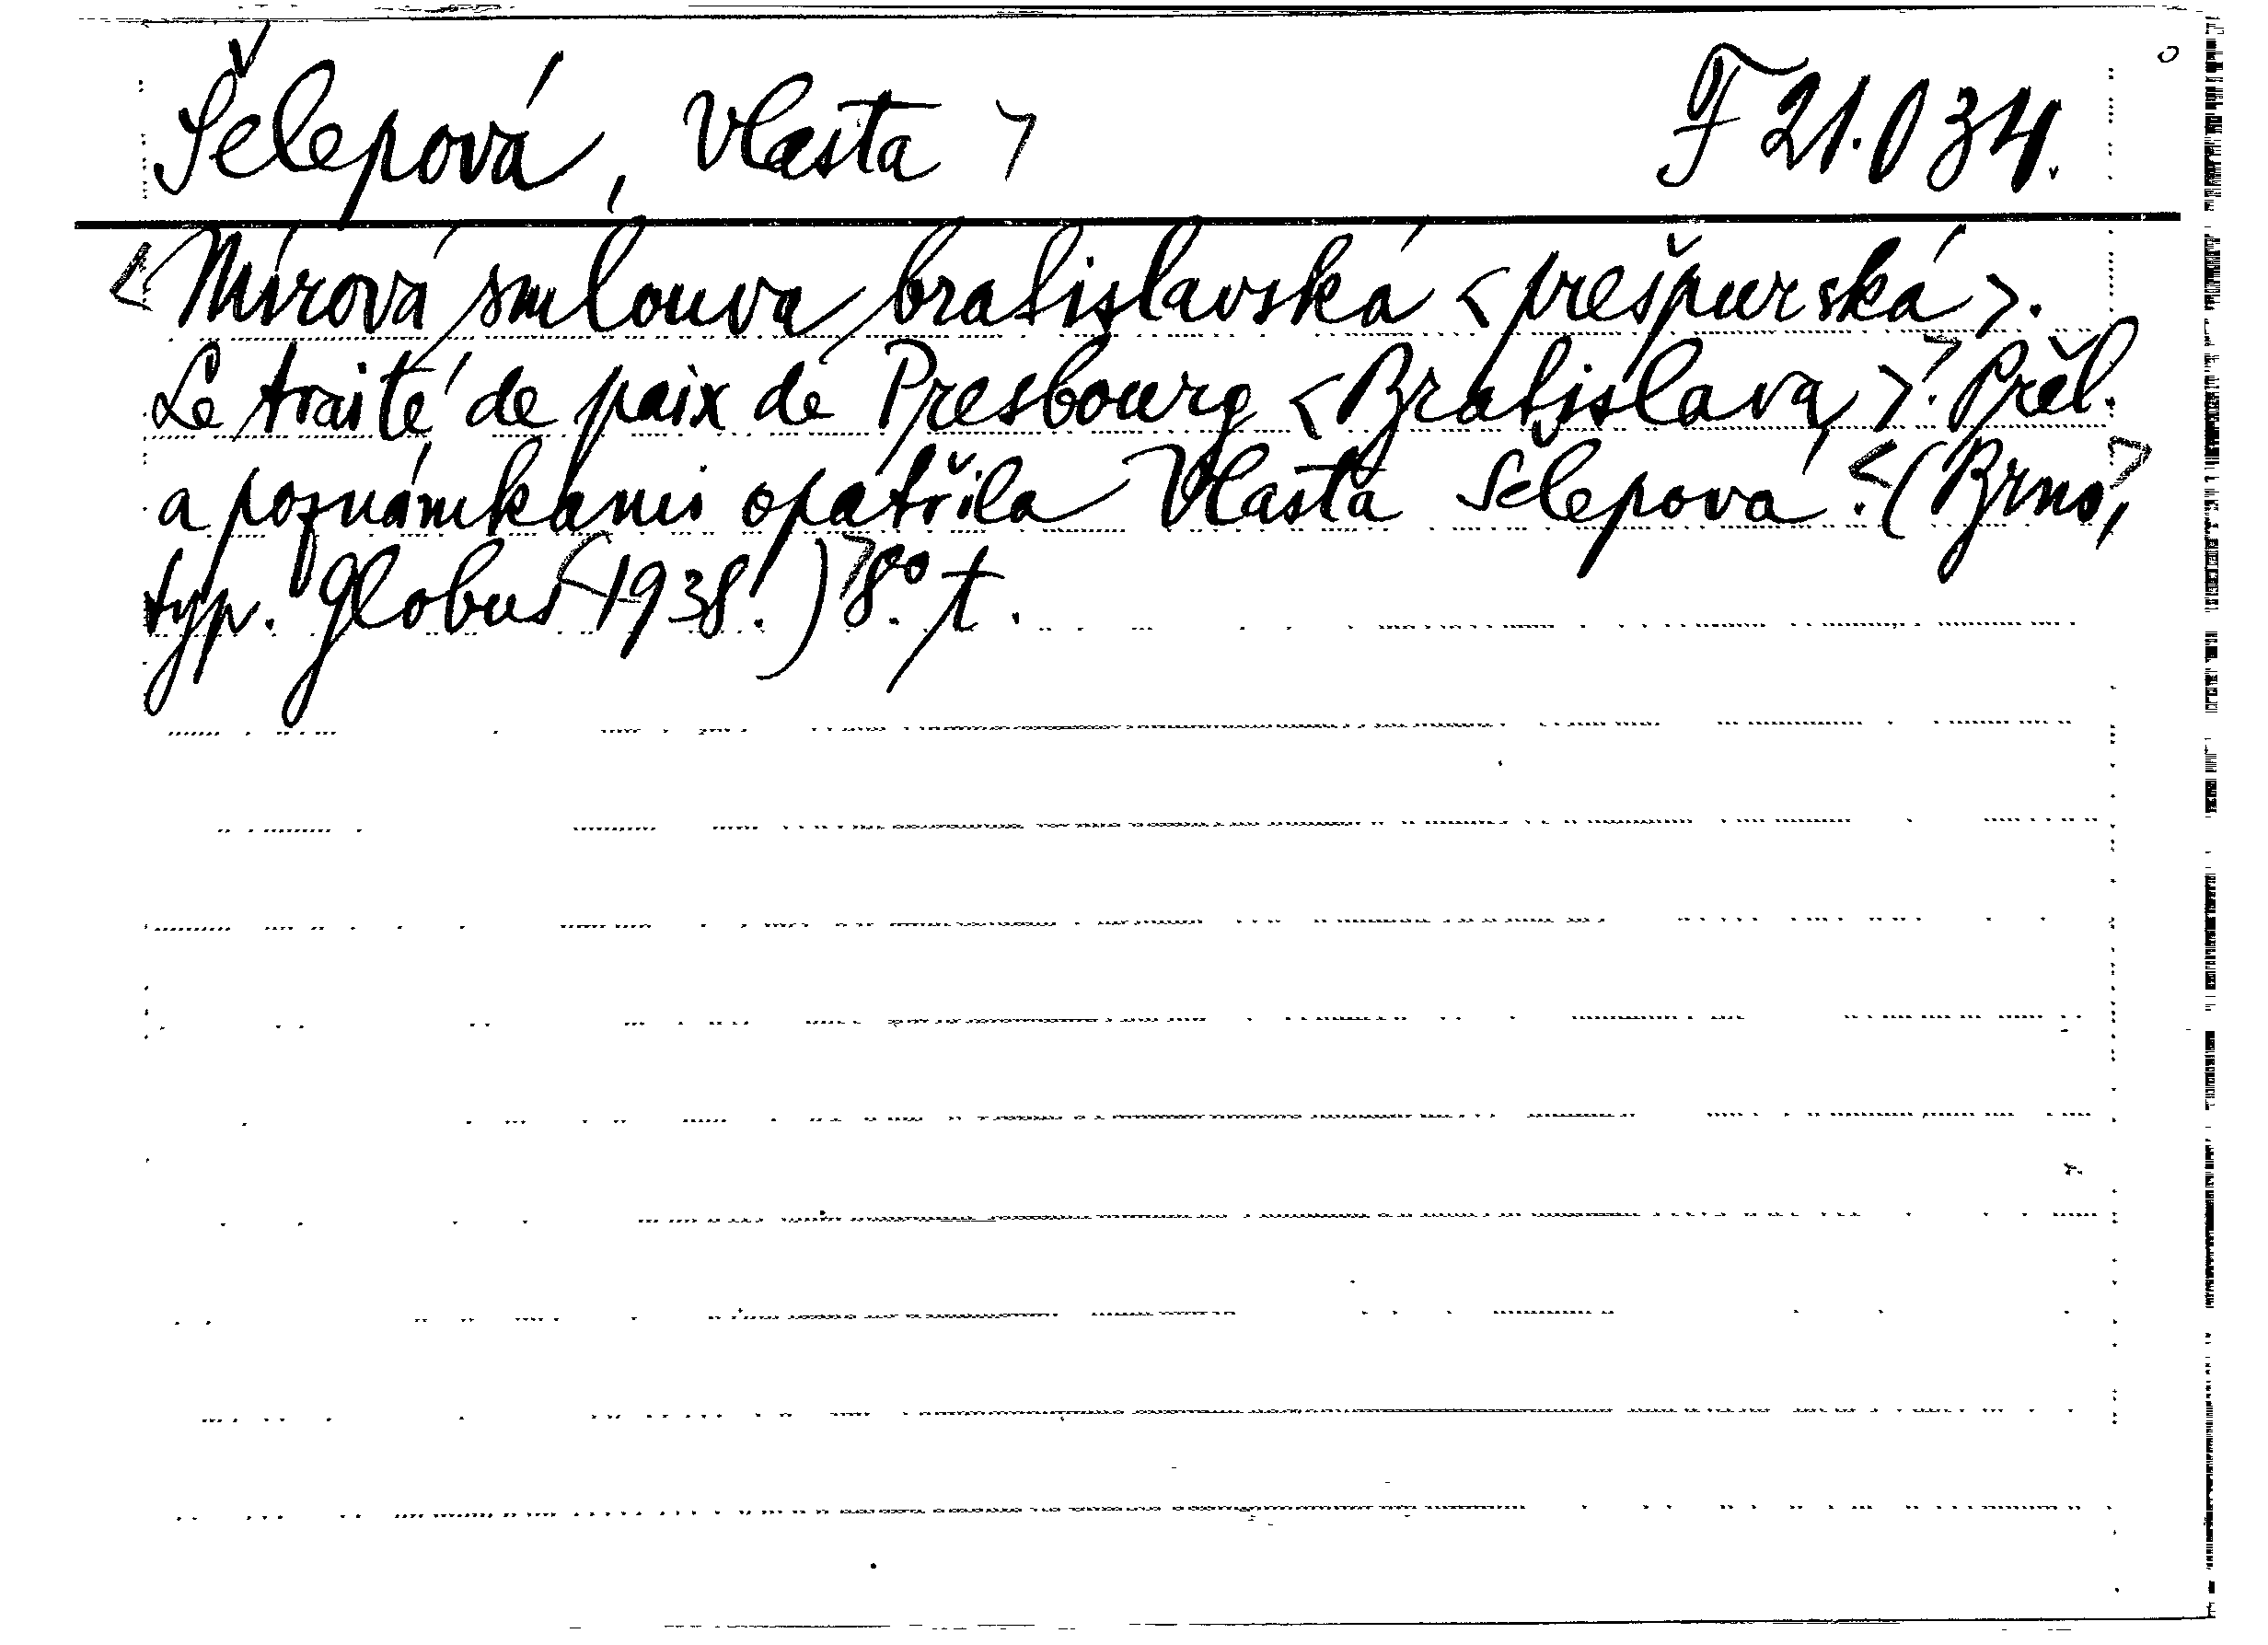 Šelepová, Vlasta > F 21.034.
< Mírová smlouva bratislavská <prešpurská>.
Le traité de paix de Presbourg <Bratislava>. > Přel.
a poznámkami opatřila Vlasta Šelepová. < (Brno, >
typ. Globus < 1938.) > 8° t.